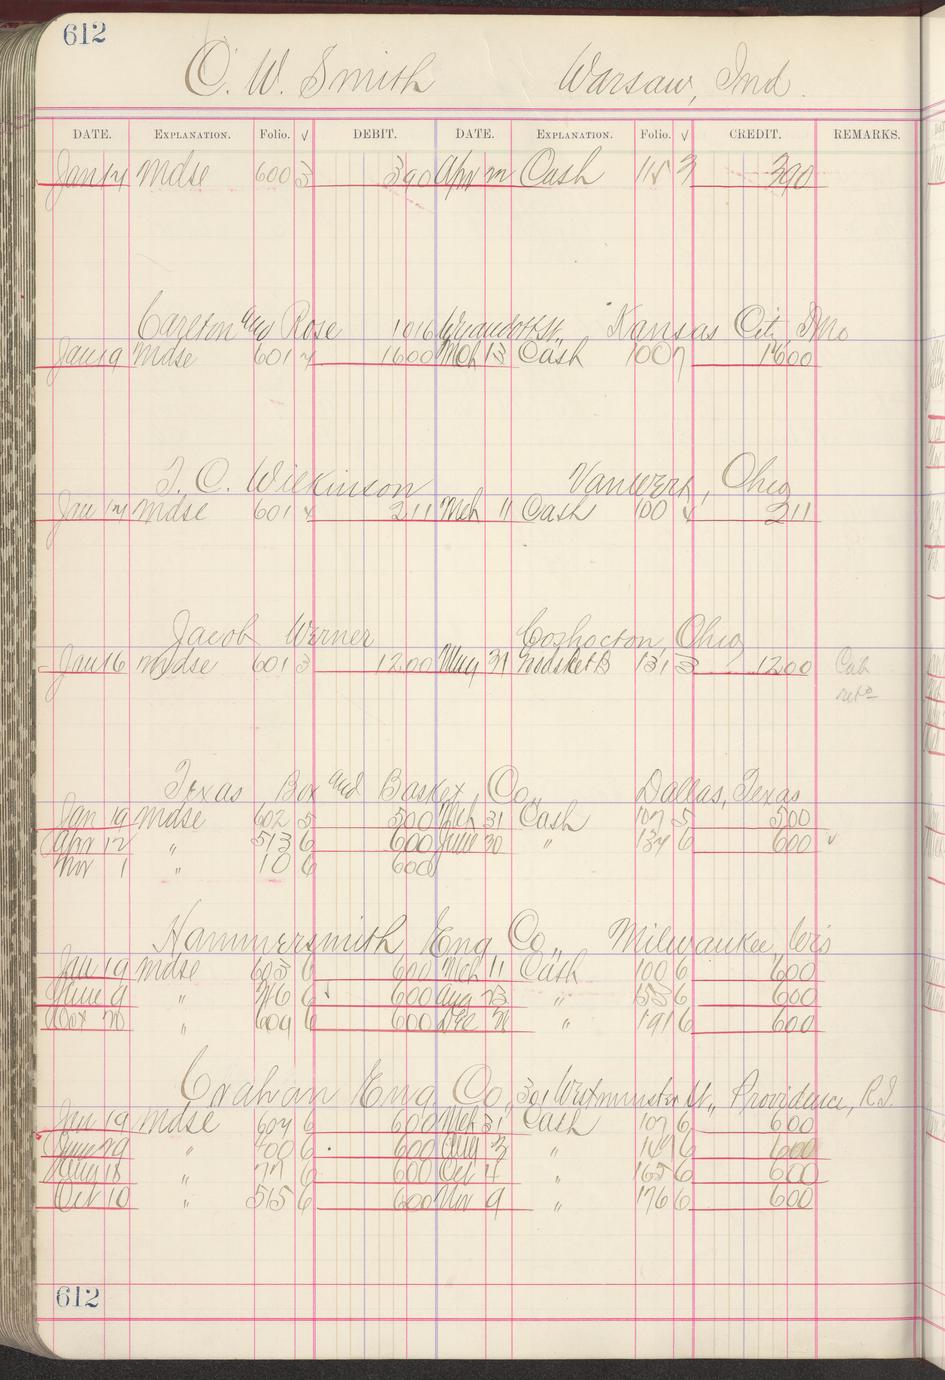 612
O. W. Smith Warsaw, Ind.
DATE. EXPLANATION. Folio. √ DEBIT. DATE. EXPLANATION. Folio. √ CREDIT. REMARKS.
Jan 14 Mdse 600 3 390 Apr Cash 115 3 390
Carlton and Rose 1016 Wyandott St., Kansas City, Mo
Jan 19 Mdse 601 7 1600 Mch 13 Cash 100 7 1600
T. C. Wilkinson Vanwert, Ohio
Jan 14 Mdse 601 4 211 Mch 11 Cash 100 4 211
Jacob Werner Coshocton, Ohio
Jan 16 Mdse 601 3 1200 May 31 131 3 1200
Texas Box and Basket Co., Dallas, Texas
Jan 19 Mdse 602 5 500 Mch 31 Cash 107 5 500
Apr 12 " 513 6 600 June 30 " 134 6 600 √
Nov 1 " 10 6 600
Hammersmith Eng Co., Milwaukee Wis
Jan 19 Mdse 603 6 600 Mch 11 Cash 100 6 600
June 9 " 6 600 Aug 23 " 6 600
Nov 20 " 609 6 600 Dec " 191 6 600
Crahan Eng Co., 301 Westminster St., Providence, R.I.
Jan 19 Mdse 604 6 600 Mch 31 Cash 107 6 600
" 400 6 600 Aug 3 " 6 600
Aug 18 " 77 6 600 Oct 4 " 165 6 600
Oct 10 " 515 6 600 Nov 9 " 176 6 600
612